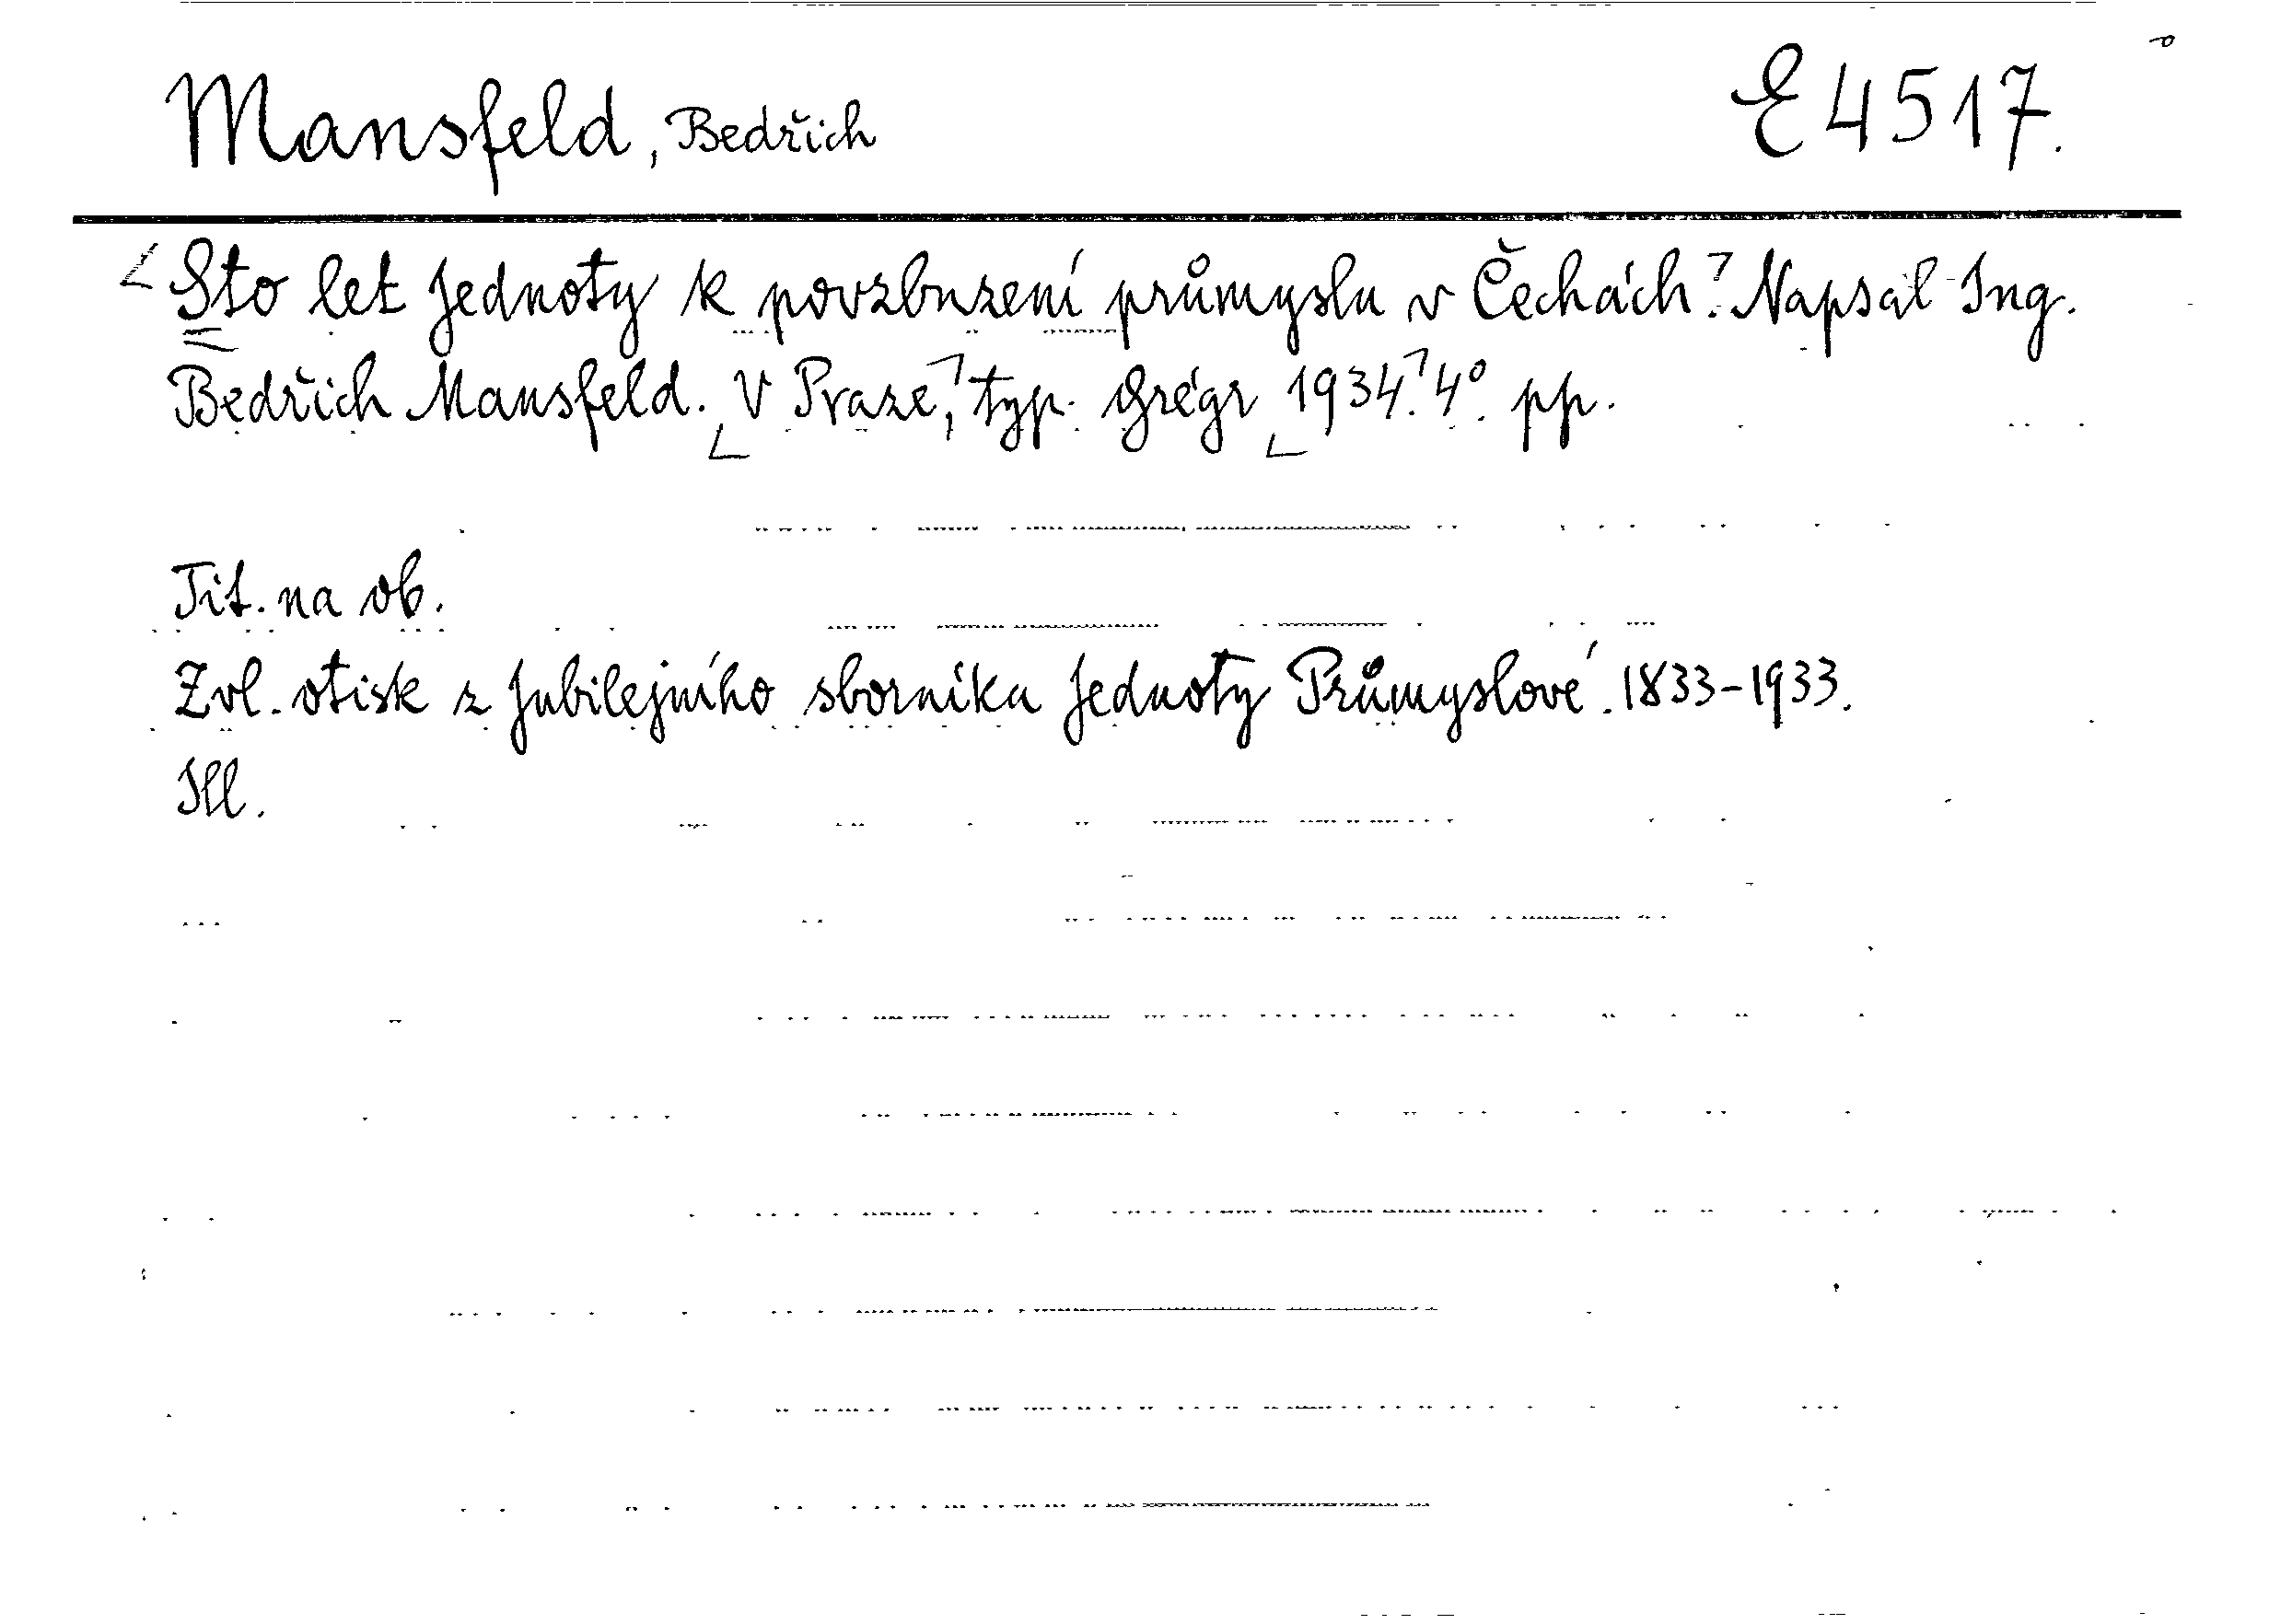 Mansfeld, Bedřich E 4517.
Sto let Jednoty k povzbuzení průmyslu v Čechách. Napsal Ing.
Bedřich Mansfeld. V Praze, typ. Grégr 1934. 4° pp.
Tit. na ob.
Zvl. otisk z Jubilejního sborníka Jednoty Průmyslové. 1833-1933.
Ill.